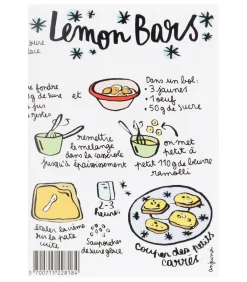 Lemon Bars
sucre
glace
fondre
g de sucre et
jus
zestes
Dans un bol:
• 3 jaunes
• 1 oeuf
• 50g de sucre
remettre
le mélange
dans la casserole
jusqu'à épaississement
on met
petit à
petit 110g de beurre
ramolli
1 heure
étaler la crème
sur la pâte
cuite
Saupoudrer
de sucre glace
couper des petits
carrés
3 700719 228184